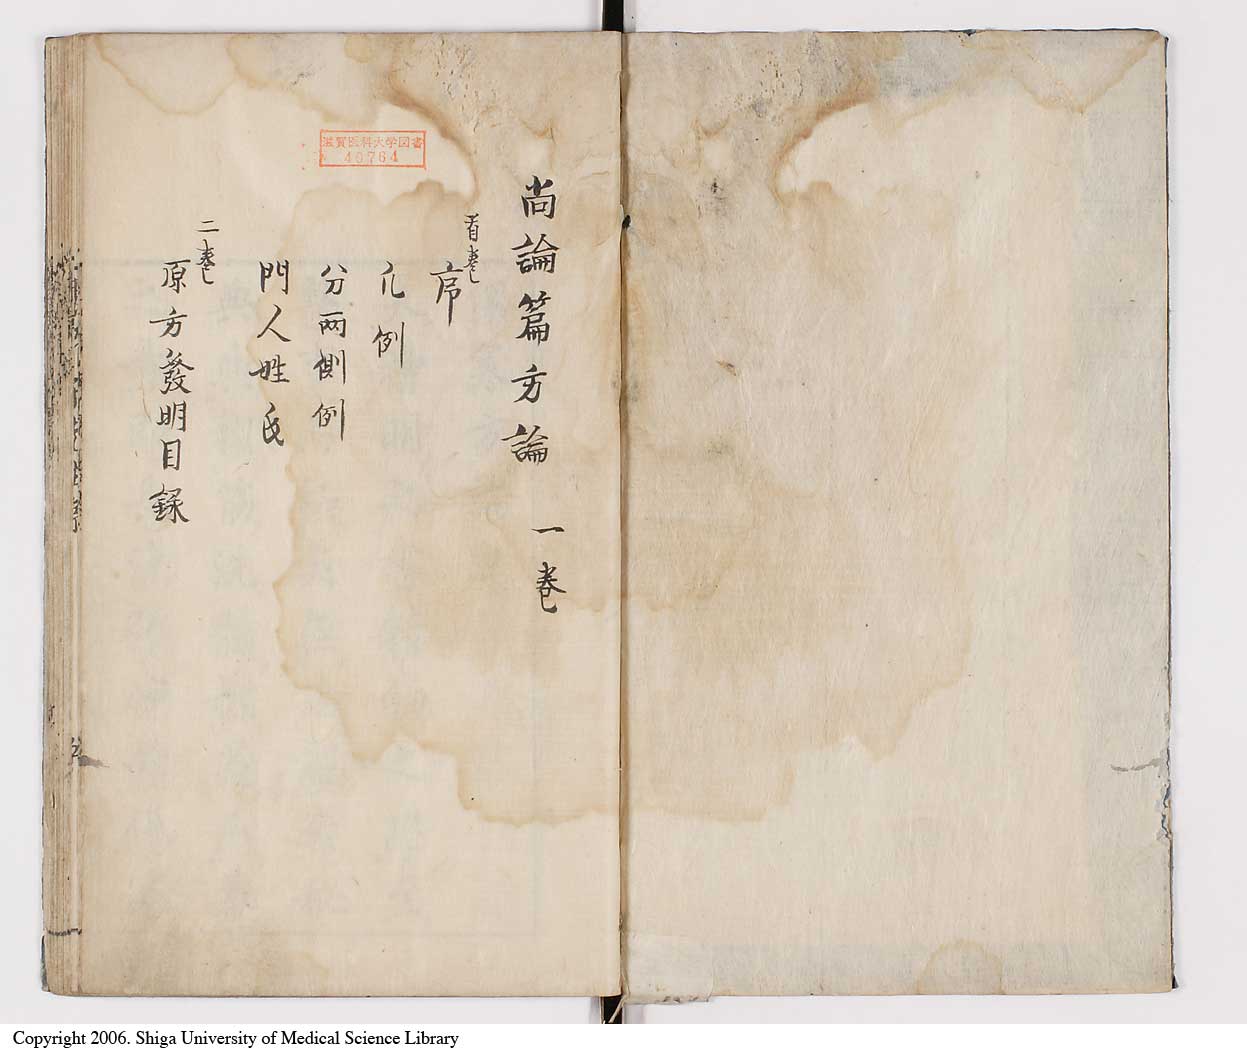 尚論篇方論 一卷
首卷
序
凡例
分兩側例
門人姓氏
二卷
原方發明目録
滋賀医科大学図書
40764
Copyright 2006. Shiga University of Medical Science Library